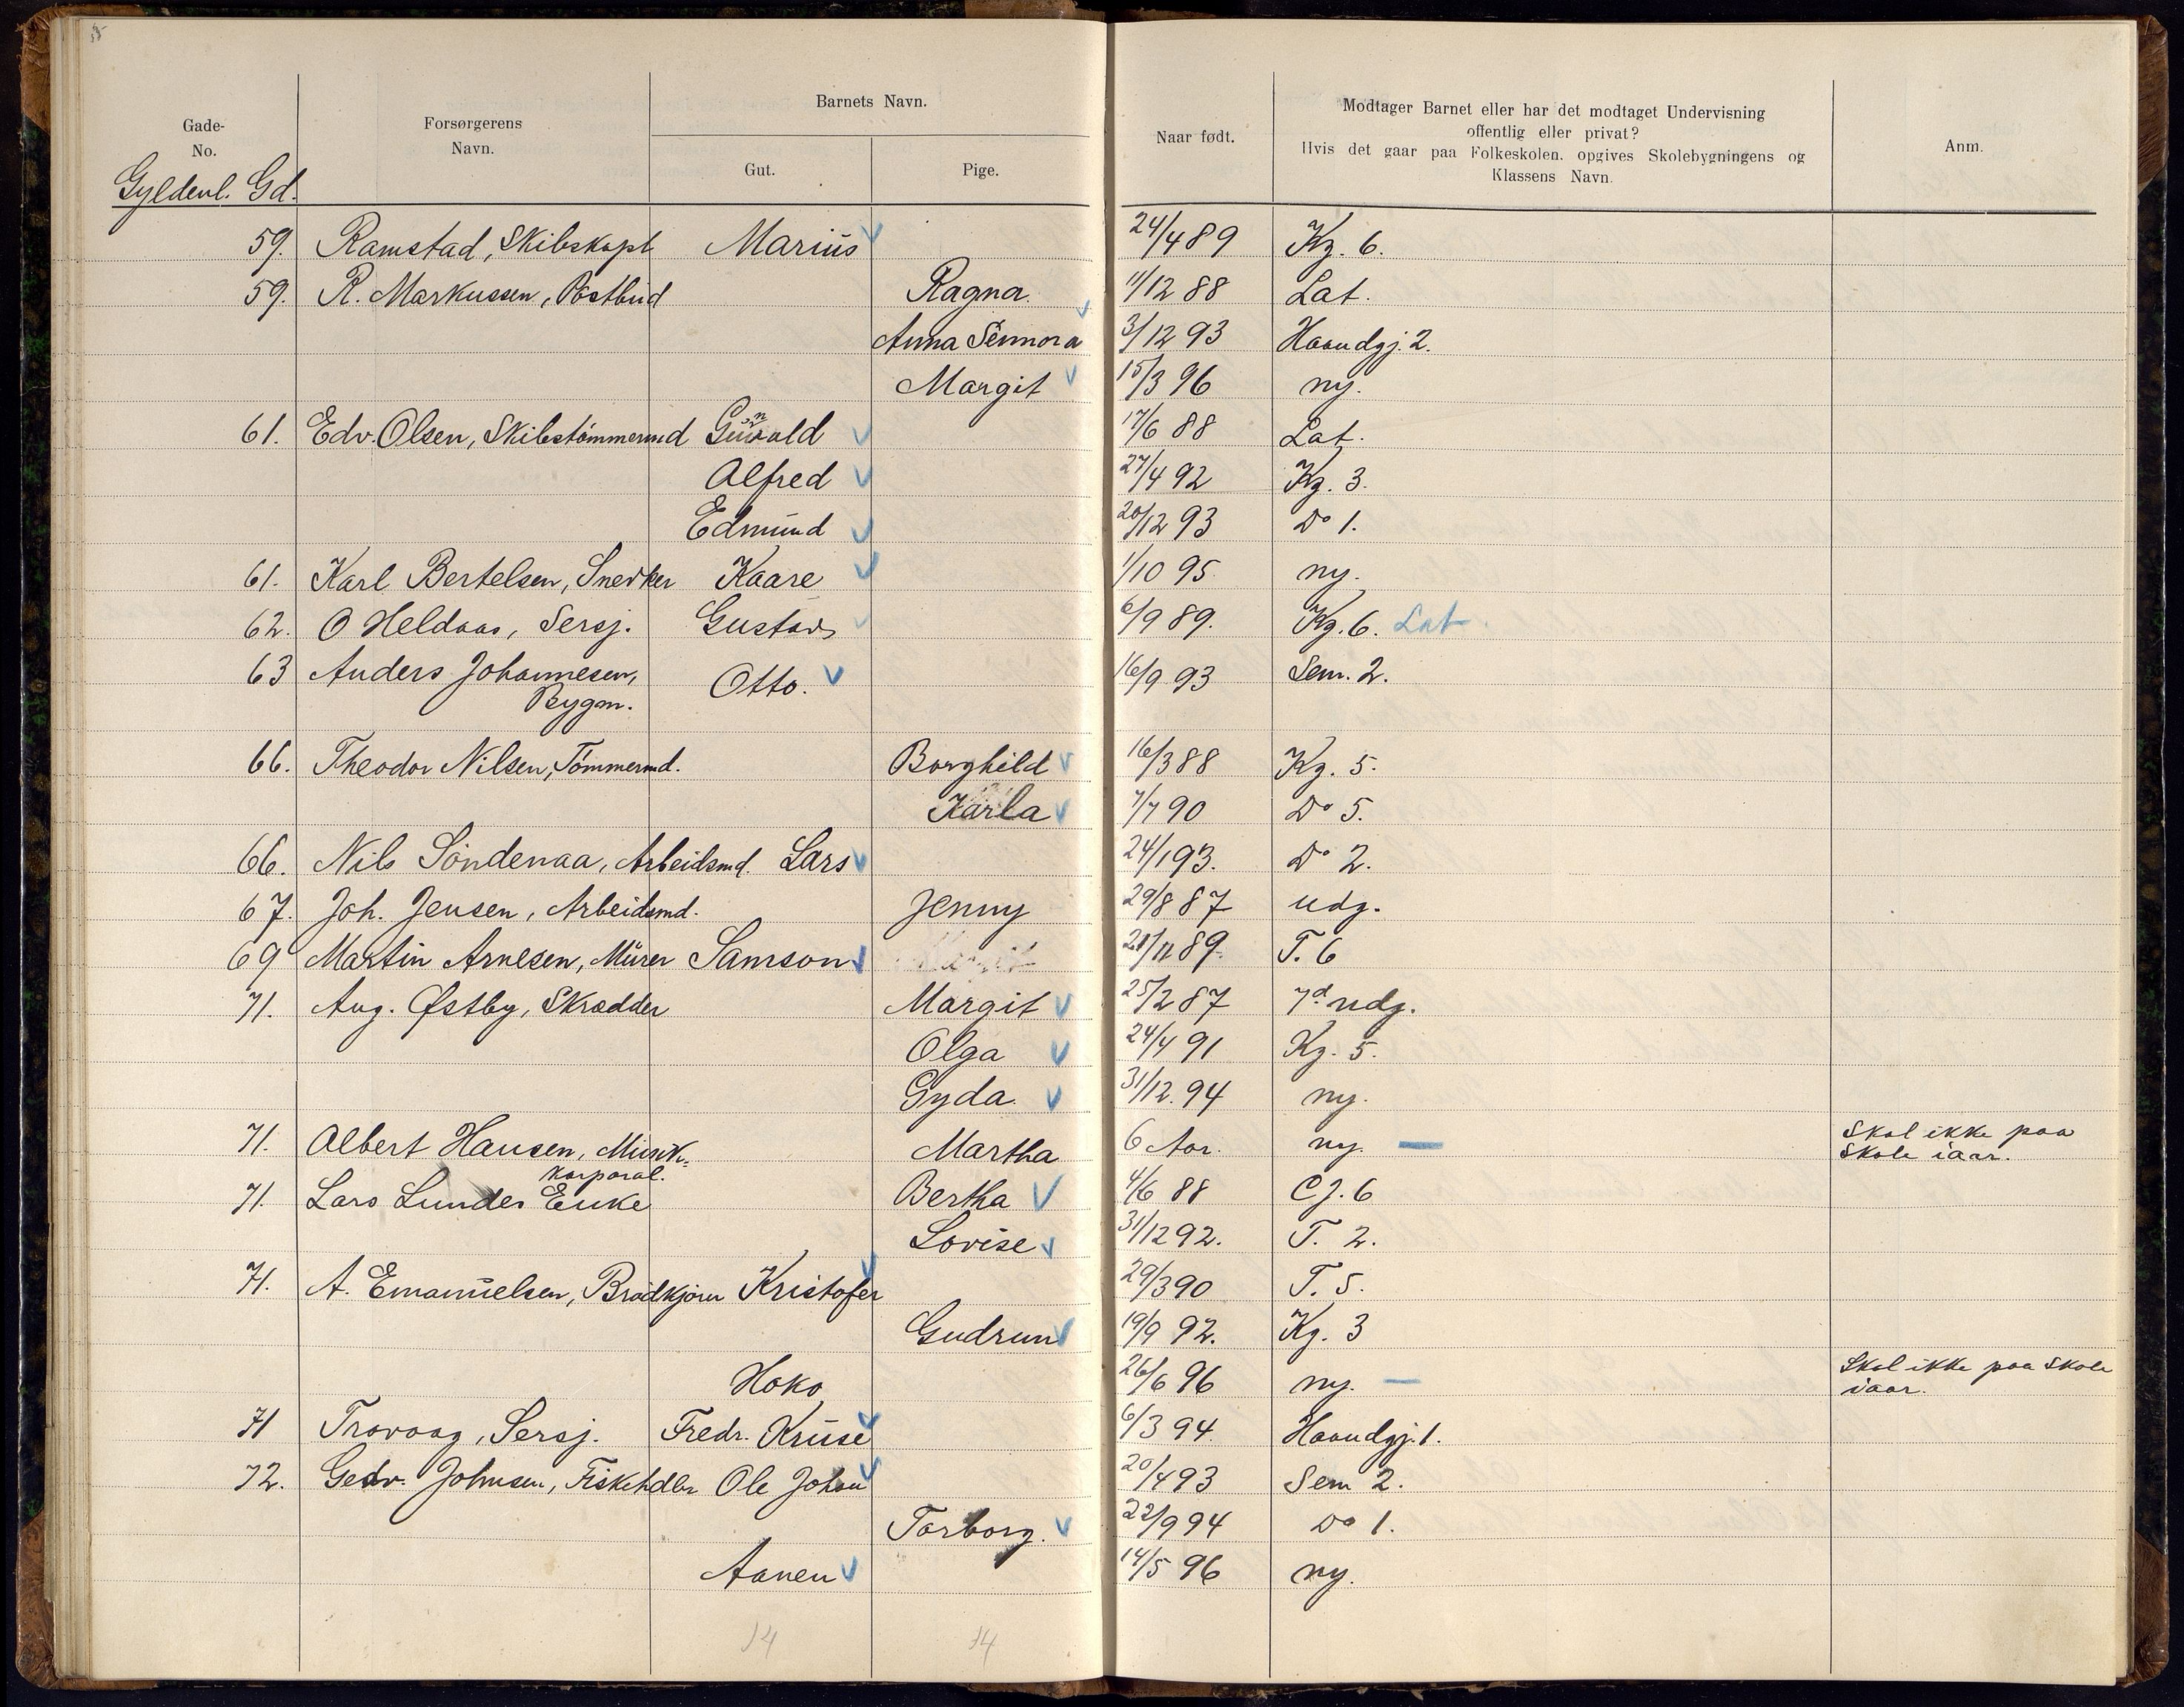 Gade-
No.
Forsørgerens
Navn.
Barnets Navn.
Gut.
Pige.
Naar født.
Modtager Barnet eller har det modtaget Undervisning
offentlig eller privat?
Hvis det gaar paa Folkeskolen. opgives Skolebygningens og
Klassens Navn.
Anm.
Gyldenl. Gd.
59. Ramstad, Skibskapt Marius 24/4 89 Kg. 6.
59. R. Markussen, Postbud Ragna 11/12 88 Lat.
Anna Sennora 3/12 93 Haandgj. 2.
Margit 15/3 96 ny.
61. Edv. Olsen, Skibstømmermd 17/6 88 Lat.
Alfred 27/4 92 Kg. 3.
Edmund 20/12 93 Do 1.
61. Karl Bertelsen, Snedker Kaare 1/10 95 ny.
62. O Heldaas, Sersj. Gustav 6/9 89. Kg. 6. Lat
63 Anders Johannesen, Otto. 16/9 93 Sem. 2.
Bygm.
66. Theodor Nilsen, Tømmermd. Borghild 16/3 88 Kg. 5.
Karla 7/7 90 Do 5.
66. Nils Söndenaa, Arbeidsmd. Lars 24/1 93. Do 2.
67. Joh. Jensen, Arbeidsmd. Jenny 29/8 87 udg.
69 Martin Arnesen, Murer Samson 21/11 89. T. 6
71. Aug. Østby, Skrædder Margit 25/2 87 7d udg.
Olga 24/4 91 Kg. 5.
Gyda. 31/12. 94 ny.
71. Albert Hansen, Musik- Martha 6 Aar. ny. — Skal ikke paa
korporal. Skole iaar.
71. Lars Lundes Enke Bertha 4/6 88 Cj. 6
Lovise 31/12 92. T. 2.
71. A. Emanuelsen, Brødkjører Kristofer 29/3 90 T. 5.
Gudrun 19/9 92. Kg. 3
Hoko 26/6 96 ny. — Skal ikke paa Skole
iaar.
71 Travaag, Sersj. Fredr. Kruse 6/3 94 Haandgj. 1.
72. Johnsen, Fiskehdlr Ole Johan 20/4 93 Sem 2.
Torborg. 22/9 94 Do 1.
Aanen 14/5 96 ny.
14 14